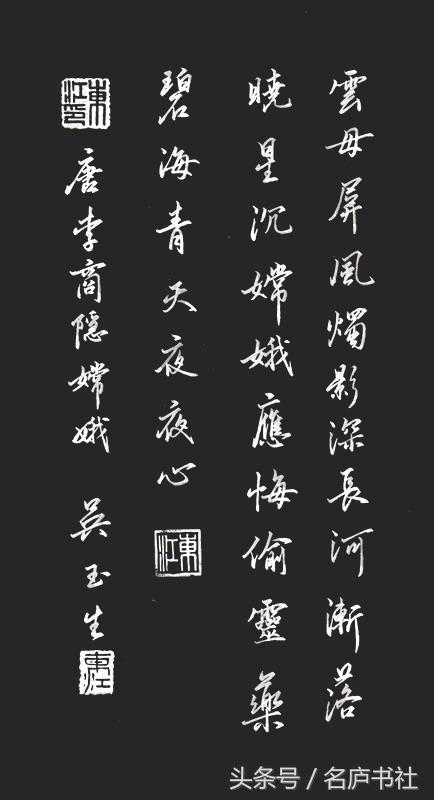 雲母屏風燭影深長河漸落
曉星沉嫦娥應悔偷靈藥
碧海青天夜夜心
東江
東江印
唐李商隱嫦娥 吳玉生
東江
头条号 / 名庐书社